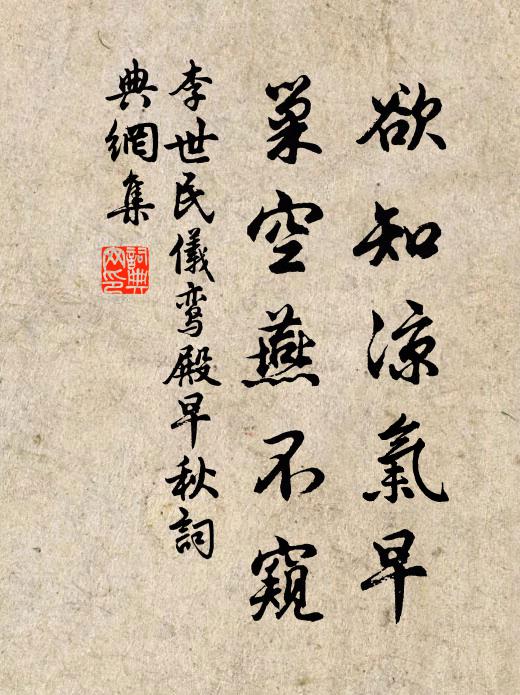 欲知涼氣早
巢空燕不窺
李世民儀鸾殿早秋詞
典網集
詞典
网印